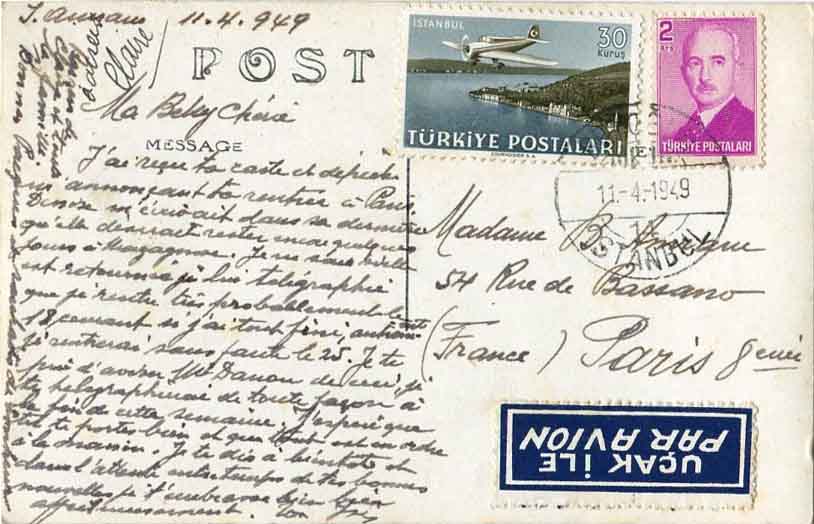 11.4.949
POST
Ma Beky Chérie
MESSAGE
J'ai reçu ta carte et dépêche
m'annonçant ta rentrée à Paris.
m'écrivait dans sa dernière
qu'elle devrait rester encore quelques
jours à Je ne sais si elle
est retournée, je lui télégraphie
que je rentre très probablement le
18 courant si j'ai tout fini, autrement
je rentrerai sans faute le 25. Je te
prie d'aviser Mr Danon de ceci, je
te télégraphierai de toute façon à
la fin de cette semaine. J'espère que
tu te portes bien et que tout est en ordre
à la maison. Je te dis à bientôt et
dans l'attente entretemps de tes bonnes
nouvelles je t'embrasse bien bien
affectueusement. ton
Claire
la famille
ISTANBUL
30
Kuruş
TÜRKİYE POSTALARI
2
TÜRKİYE POSTALARI
11-4-1949
ISTANBUL
Madame B.
54 Rue de Bassano
(France) Paris 8ème
UÇAK İLE
PAR AVION